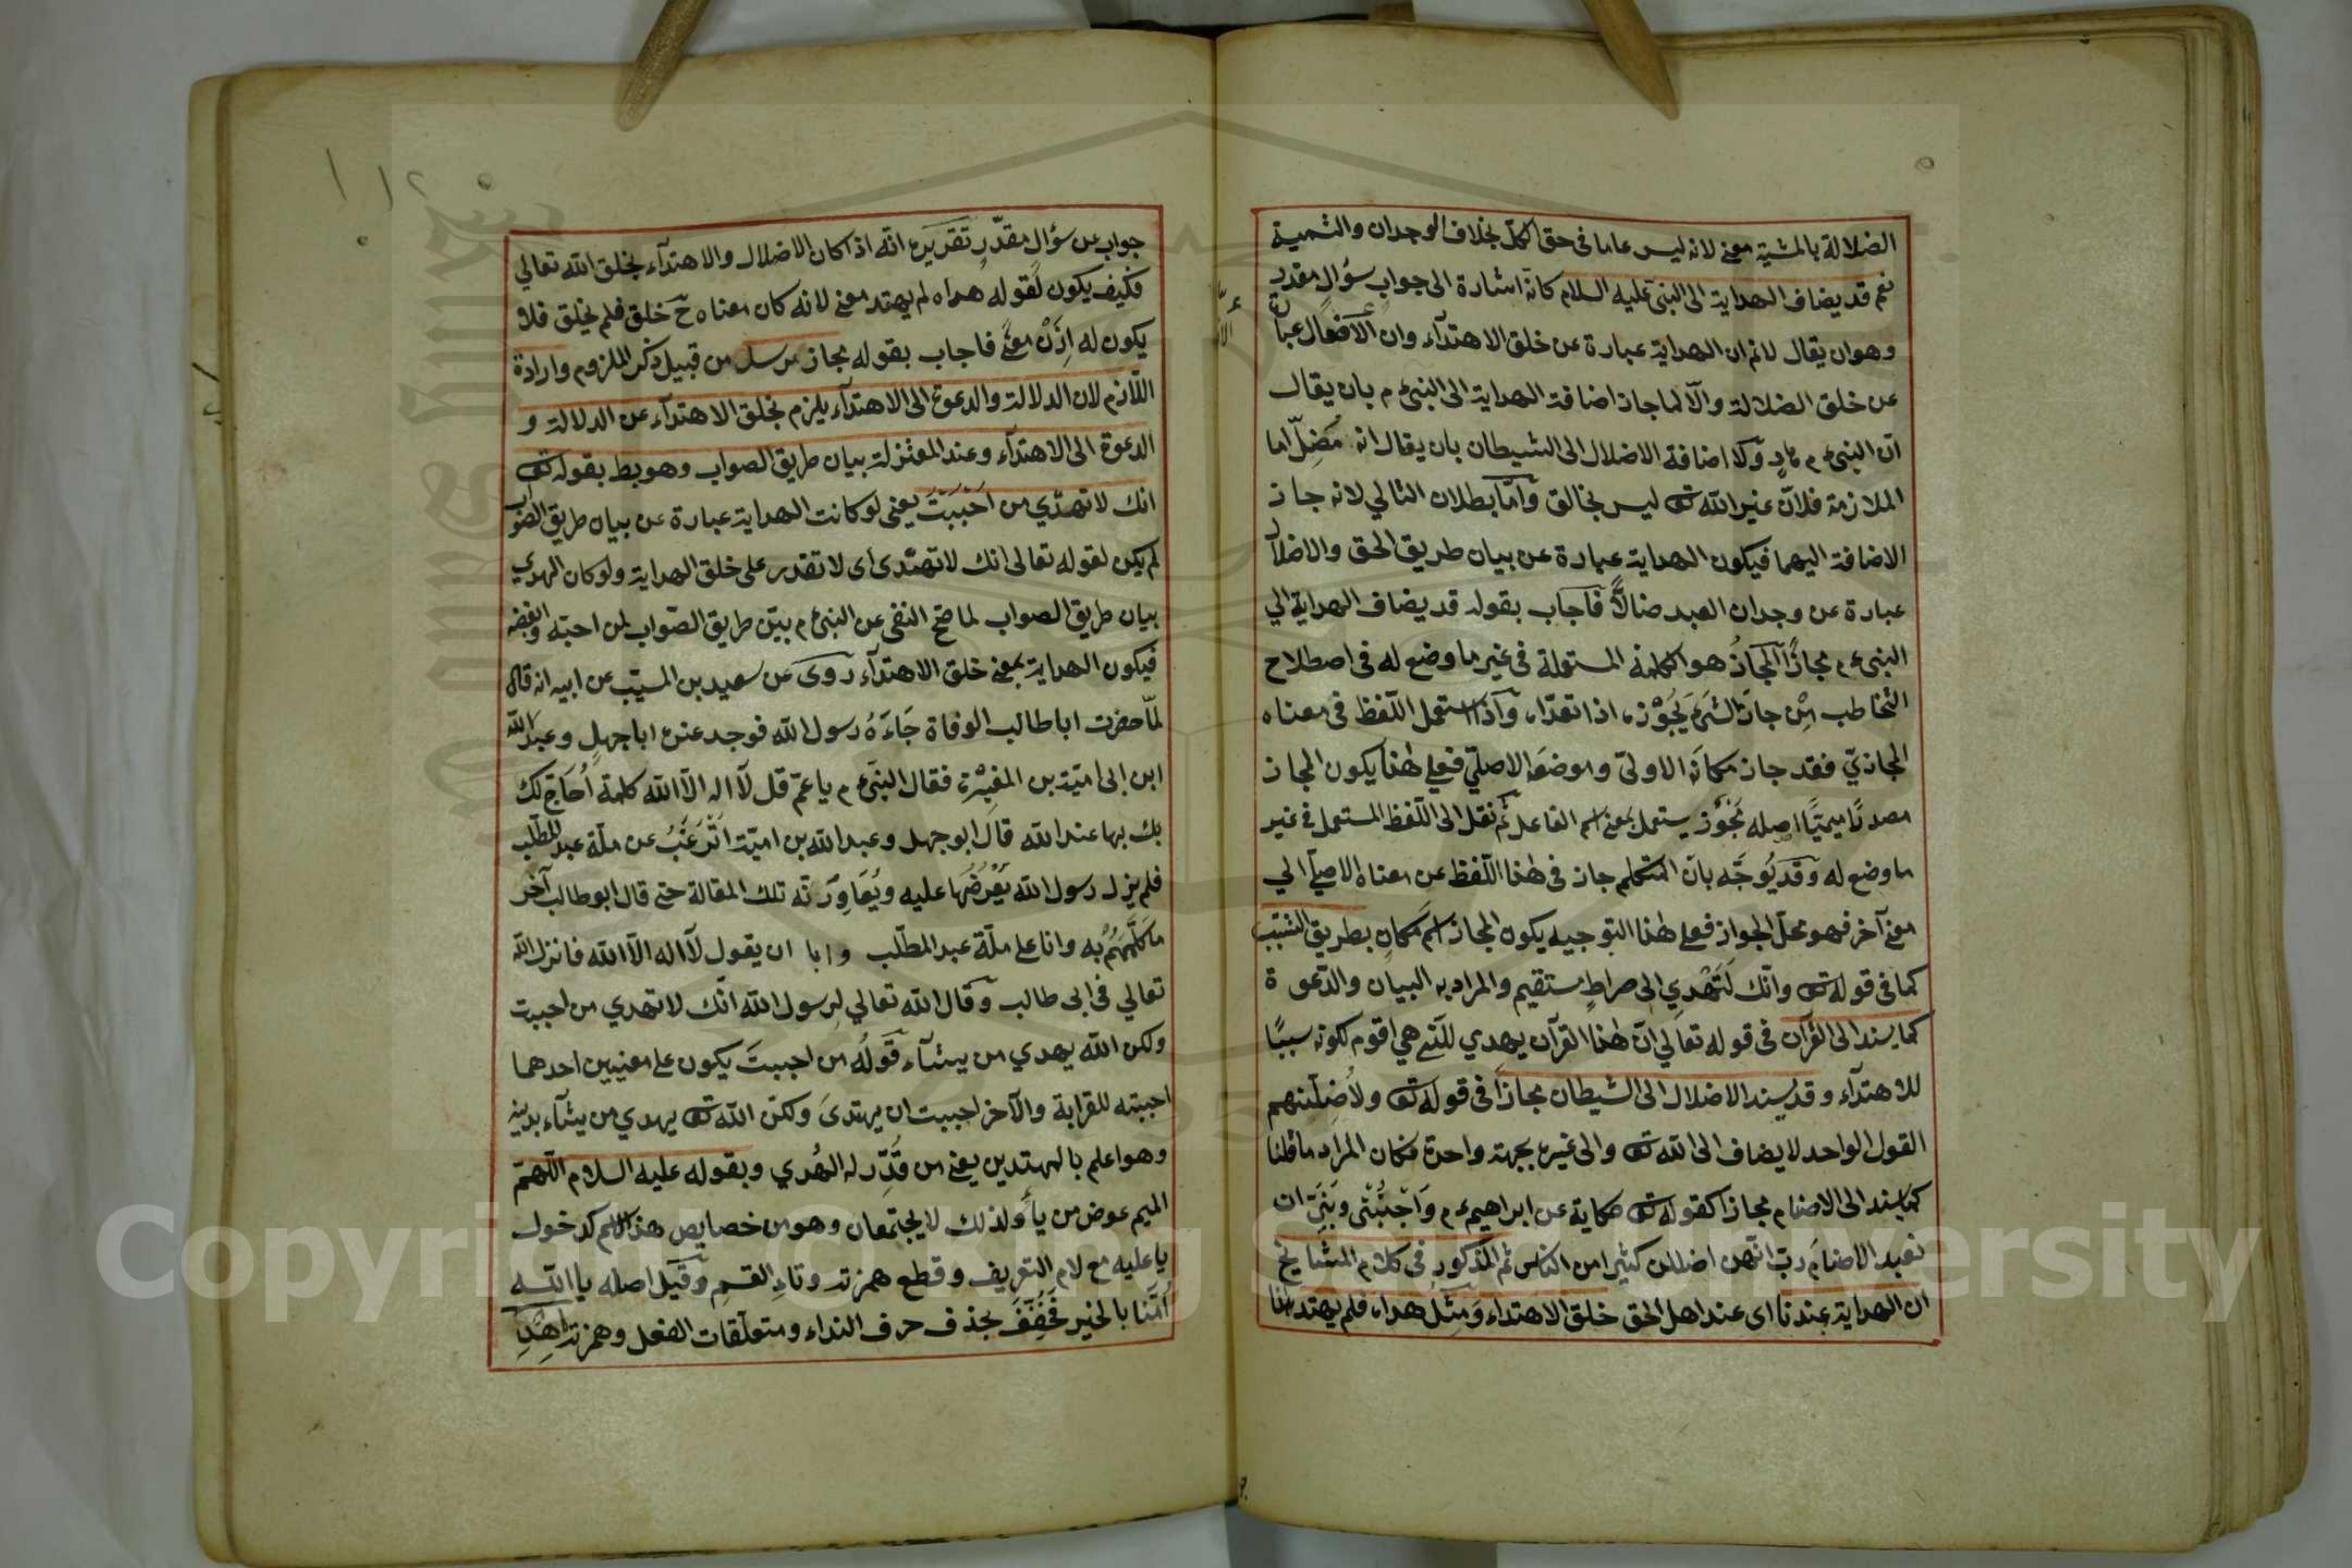 الضلالة بالمشية معنى لانه ليس عاما فى حق الكل بخلاف الوجدان والتسمية
نعم قد يضاف الهداية الى النبى عليه السلام كانه اشارة الى جواب سؤال مقدر
وهو ان يقال لانم ان الهداية عبارة عن خلق الاهتدآء وان الافعال عبا
عن خلق الضلالة والآ لما جاز اضافة الهداية الى النبىء م بان يقال
ان النبىء م هادٍ وكلا اضافة الاضلال الى الشيطان بان يقال انه مُضِلّ اما
الملازمة فلانّ غير الله تع ليس بخالق وامّا بطلان التالي لانه جاز
الاضافة اليهما فيكون الهداية عبارة عن بيان طريق الحق والاضلا
عبارة عن وجدان العبد ضالاًّ فاجاب بقوله قد يضاف الهداية الي
النبىء م مجازًا المجازُ هو الكلمة المستعملة فى غير ما وضع له فى اصطلاح
التخاطب مِنْ جازَ الشئَ يَجُوْزه اذا تعدّاه وَاذا استعمل اللّفظ فى معناه
المجازيّ فقد جاز مكانَه الاولىّ وموضعَه الاصلىّ فعلى هٰذا يكون المجاز
مصدرًا ميميًّا اصله مَجْوَز يستعمل بمعنى اسم الفاعل ثم نقل الى اللّفظ المستعمل فى غير
ما وضع له وَقد يُوجَّه بانّ المتكلم جاز فى هٰذا اللّفظ عن معناه الاصلىّ الي
معنى آخر فهو محلّ الجواز فعلى هٰذا التوجيه يكون المجاز اسم مكانٍ بطريق التسبّب
كما فى قوله تع وانّك لَتَهْدِي الى صراطٍ مستقيم والمراد به البيان والدّعوة
كما يسند الى القرآن فى قوله تعالي انّ هٰذا القرآن يهدي للّتى هي اقوم لكونه سببًا
للاهتدآء وقد يسند الاضلال الى الشيطان مجازًا فى قوله تع ولاُضِلّنّهم
القول الواحد لا يضاف الى الله تع والى غيره بجهة واحدة فكان المراد ما قلنا
كما يسند الى الاصنام مجازا كقوله تع حكاية عن ابراهيم ء م وَاجْنُبْنى وبَنِىَّ ان
نعبد الاصنامَ ربّ انّهن اضللن كثيرا من الناس ثم المذكور فى كلام المشايخ
ان الهداية عندنا اى عند اهل الحق خلق الاهتداء وَمِثْلُ هداه فلم يهتد هٰذا
جواب عن سؤال مقدّر تقديره انّه اذا كان الاضلال والاهتدآء بخلق الله تعالي
فكيف يكون لقوله هداه لم يهتد معنى لانه كان معناه ح خلق فلم يخلق فلا
يكون له اِذَنْ معنًى فاجاب بقوله مجاز مرسل من قبيل ذكر الملزوم وارادة
اللاّزم لان الدلالة والدعوة الى الاهتدآء يلزم بخلق الاهتدآء عن الدلالة و
الدعوة الى الاهتدآء وعند المعتزلة بيان طريق الصواب وهو بط بقوله تع
انك لا تهدي من اَحْبَبْتَ يعنى لو كانت الهداية عبارة عن بيان طريق الصواب
لم يكن لقوله تعالى انك لا تهدى اى لا تقدر على خلق الهداية ولو كان الهدي
بيان طريق الصواب لما صح النفى عن النبىء م بيّن طريق الصّواب لمن احبّه وابغضه
فيكون الهداية بمعنى خلق الاهتدآء روى عن سعيد بن المسيّب عن ابيه انه قال
لمّا حضرت ابا طالب الوفاة جَاءَهُ رسول الله فوجد عنده ابا جهلٍ وعبد الله
ابن ابى اميّة بن المغيْرة فقال النبىّ ء م يا عمّ قل لآ اله الاّ الله كلمة اُحَاجّ لك
بك بها عند الله قال ابو جهل وعبد الله بن اميّة اَتَرْغَبُ عن ملّة عبد المطّلب
فلم يزل رسول الله يَعْرِضُهَا عليه ويُعَاوِدَ تة تلك المقالة حتى قال ابو طالب آخر
ما كلّمَهُمْ به وانا على ملّة عبد المطّلب وابا ان يقول لآ اله الاّ الله فانزل الله
تعالي فى ابى طالب وقال الله تعالي لرسول الله انّك لا تهدي من احببت
ولكن الله يهدي من يشآء قَولُه من احببتَ يكون على معنيين احدهما
احببته للقرابة والآخر احببت ان يهتدىَ ولكنّ الله تع يهدي من يشآء بدينه
وهو اعلم بالمهتدين يعنى من قَدَّر له الهُدي وبقوله عليه السلام اللّهمّ
الميم عوض من يا ولذلك لا يجتمعان وهو من خصايص هذا الاسم كدخول
يا عليه مع لام التعريف وقطع همزته وتاءِ القسمِ وَقيل اصله يا الله
اُمّنا بالخير فَخُفِّفَ بحذف حرف النداء ومتعلّقات الفعل وهمزته اهْدِ